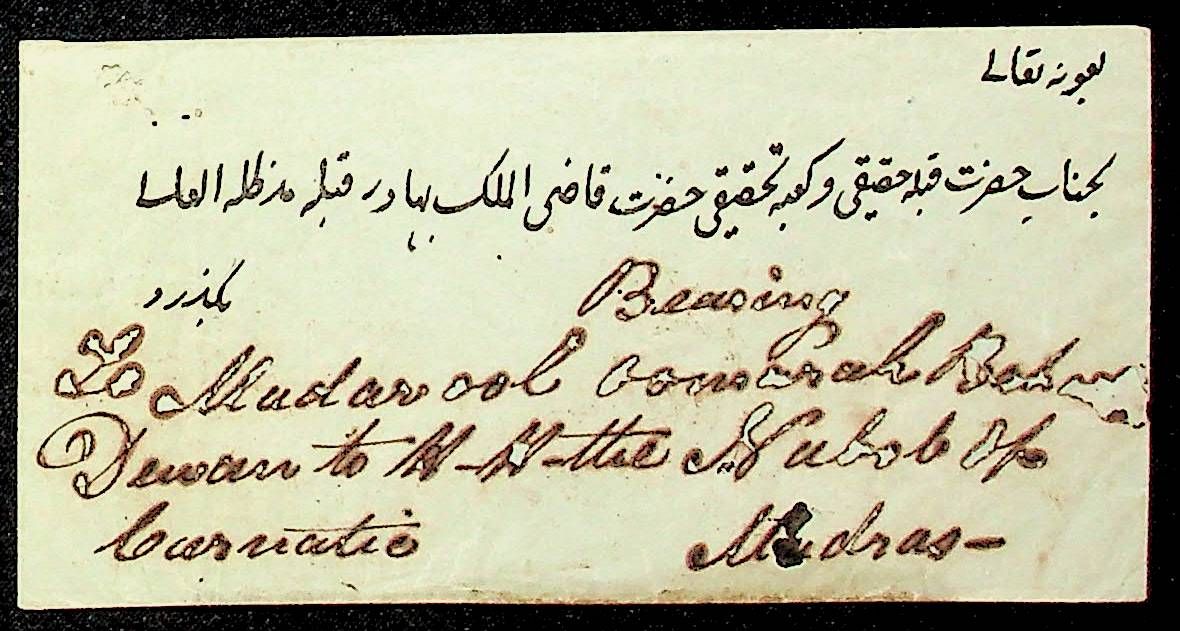 بعونه تعالے
بجناب حضرت قبله حقیقی و کعبه تحقیقی حضرت قاضی الملک بہادر قبله مدظله العالے
بگذرد
Bearing
To Madar ool oomrah Bahr
Dewan to H-H-the Nabob of
Carnatic Madras-